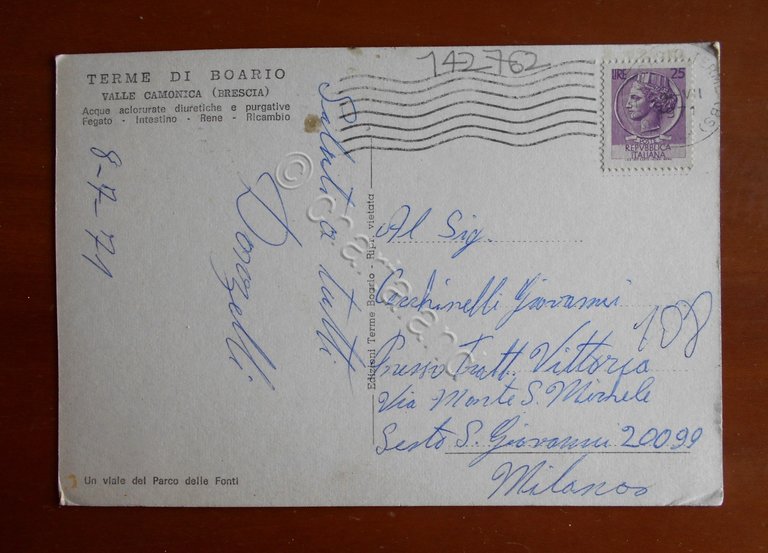 TERME DI BOARIO
VALLE CAMONICA (BRESCIA)
Acque aclorurate diuretiche e purgative
Fegato - Intestino - Rene - Ricambio
142762
LIRE 25
POSTE
REPVBBLICA
ITALIANA
8-7-71
Saluti a tutti
Donzelli
Edizioni Terme Boario - Ripr. vietata
Al Sig.
Cecchinelli Giovanni
108
Presso Tratt. Vittoria
Via Monte S. Michele
Sesto S. Giovanni 20099
Milano
Un viale del Parco delle Fonti
© chartaland